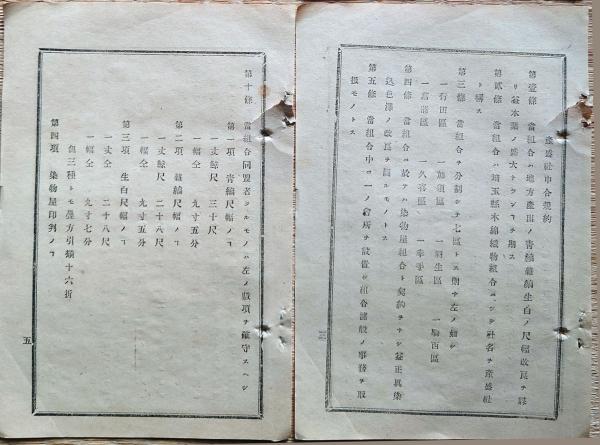 産盛社申合規約
第壹條 當組合ハ地方産出ノ青縞雜縞生白ノ尺幅改良ヲ謀
リ益本業ノ盛大ナランコヲ期ス
第貳條 當組合ハ埼玉縣木綿織物組合ニシテ社名ヲ産盛社
ト稱ス
第三條 當組合ヲ分割シテ七區トス則チ左ノ如シ
一行田區 一加須區 一羽生區 一騎西區
一菖蒲區 一久喜區 一幸手區
第四條 當組合ハ故アハ染物屋組合ト契約ヲナシ益正眞染
込色澤ノ改良ヲ圖ルモノトス
第五條 當組合中ニ一ノ會所ヲ設置シ組合諸般ノ事務ヲ取
扱モノトス
第十條 當組合同盟者タルモノハ左ノ款項ヲ確守スヘシ
第一項 青縞尺幅ノコ
一丈鯨尺 三十尺
一幅仝 九寸五分
第二項 雜縞尺幅ノコ
一丈鯨尺 二十八尺
一幅仝 九寸五分
第三項 生白尺幅ノコ
一丈仝 二十八尺
一幅仝 九寸七分
但三種トモ疊方引揃十六折
第四項 染物屋印判ノコ
五